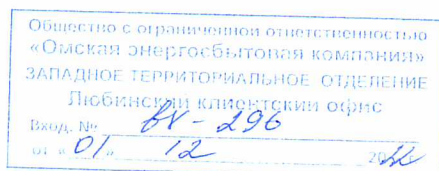 Общество с ограниченной ответственностью
«Омская энергосбытовая компания»
ЗАПАДНОЕ ТЕРРИТОРИАЛЬНОЕ ОТДЕЛЕНИЕ
Любинский клиентский офис
Вход. № вх - 296
от « 01 » 12 20